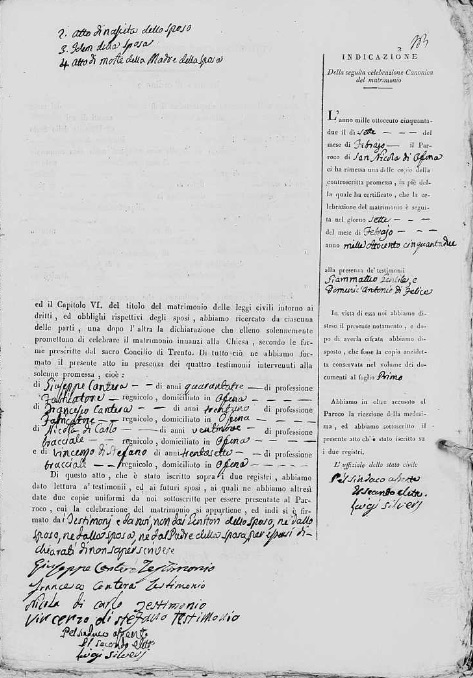 2. atto di nascita dello sposo
3. Idem della sposa
4. atto di morte della Madre della sposa
ed il Capitolo VI. del titolo del matrimonio delle leggi civili intorno ai
dritti, ed obblighi rispettivi degli sposi, abbiamo ricevuto da ciascuna
delle parti, una dopo l'altra la dichiarazione che elleno solennemente
promettono di celebrare il matrimonio innanzi alla Chiesa, secondo le forme
prescritte dal sacro Concilio di Trento. Di tutto ciò ne abbiamo formato
il presente atto in presenza dei quattro testimoni intervenuti alla
solenne promessa, cioè:
di Giuseppe Contera - - di anni quarantatre - di professione
Falegnatore - regnicolo, domiciliato in Ofena
di Francesco Contera - di anni trentuno - di professione
- regnicolo, domiciliato in Ofena
di Nicola di Carlo - di anni ventinove - di professione
bracciale - - regnicolo, domiciliato in Ofena
e di Vincenzo di Stefano di anni trentasette - di professione
bracciale - - regnicolo, domiciliato in Ofena
Di questo atto, che è stato iscritto sopra i due registri, abbiamo
dato lettura a' testimoni, ed ai futuri sposi, ai quali ne abbiamo altresì
date due copie uniformi da noi sottoscritte per essere presentate al Parroco,
cui la celebrazione del matrimonio si appartiene, ed indi si è firmato
da i Testimonj e da noi, non dai Genitori dello sposo, nè dallo
sposo, nè dalla sposa, nè dal Padre della sposa, per essersi dichiarati
di non saper scrivere
Giuseppe Conter Testimonio
Francesco Contera Testimonio
Nicola di Carlo Testimonio
Vincenzo di Stefano Testimonio
Pel sindaco assente
Il secondo eletto
Luigi Silveri
2
INDICAZIONE
Della seguita celebrazione Canonica
del matrimonio
L'anno mille ottocento cinquantadue
il dì sette - - - del
mese di Febrajo - il Parroco
di San Nicola di Ofena
ci ha rimessa una delle copie della
controscritta promessa, in piè della
quale ha certificato, che la celebrazione
del matrimonio è seguita
nel giorno sette - -
del mese di Febrajo - -
anno mille ottocento cinquantadue
alla presenza de' testimoni
Giammatteo Gentile, e
Domenic'Antonio di Felice
In vista di essa noi abbiamo disteso
il presente notamento, e dopo
di averla cifrata abbiamo disposto,
che fosse la copia anzidetta
conservata nel volume dei documenti
al foglio Primo
Abbiamo in oltre accusato al
Parroco la ricezione della medesima,
ed abbiamo sottoscritto il
presente atto ch'è stato iscritto su
i due registri.
L'uffiziale dello stato civile
Pel sindaco assente
Il secondo eletto
Luigi Silveri